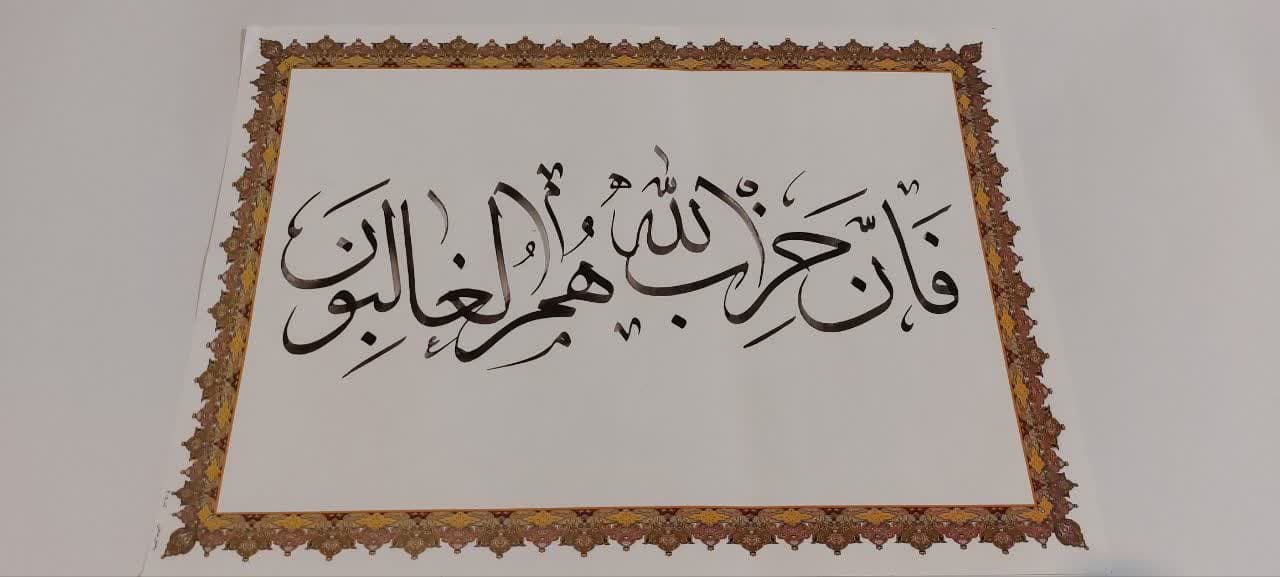 فَاِنَّ حِزْبَ اللّٰهِ هُمُ الْغالِبُونَ